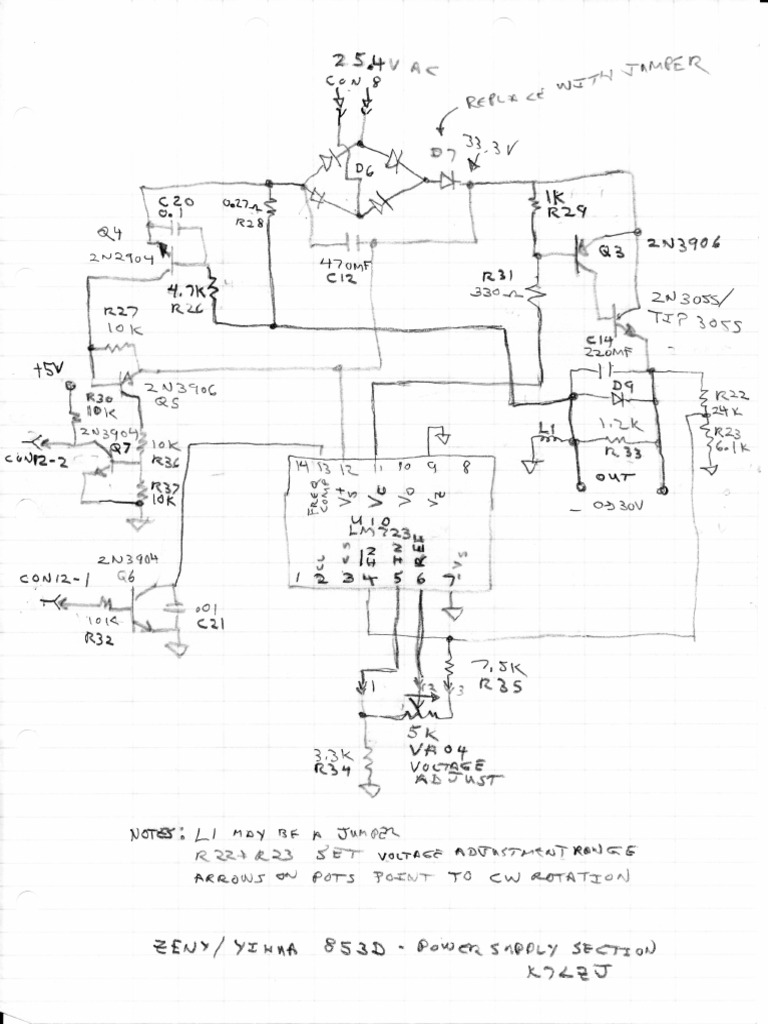 25.4V AC
CON 8
REPLACE WITH JAMPER
D7
33.3V
D6
C20
0.1
0.27Ω
R28
1K
R29
Q4
2N2904
Q3
2N3906
470MF
C12
4.7K
R26
R31
330Ω
2N3055/
TIP 3055
R27
10K
C14
220MF
+5V
2N3906
Q5
D9
R22
24K
R30
10K
2N3904
Q7
L1
1.2K
R33
R23
6.1K
CON12-2
10K
R36
14 13 12 11 10 9 8
OUT
R37
10K
FREQ
COMP
V+S
VC
VO
VZ
0-30V
U10
LM723
2N3904
Q6
CL
CS
IN
IN
REF
-VS
CON12-1
1 2 3 4 5 6 7
10K
R32
.01
C21
1
2
3
7.5K
R35
5K
3.3K
R34
VR04
VOLTAGE
ADJUST
NOTES: L1 MAY BE A JUMPER
R22+R23 SET VOLTAGE ADJUSTMENT RANGE
ARROWS ON POTS POINT TO CW ROTATION
ZENY/YIHUA 853D - POWER SUPPLY SECTION
K7LZJ